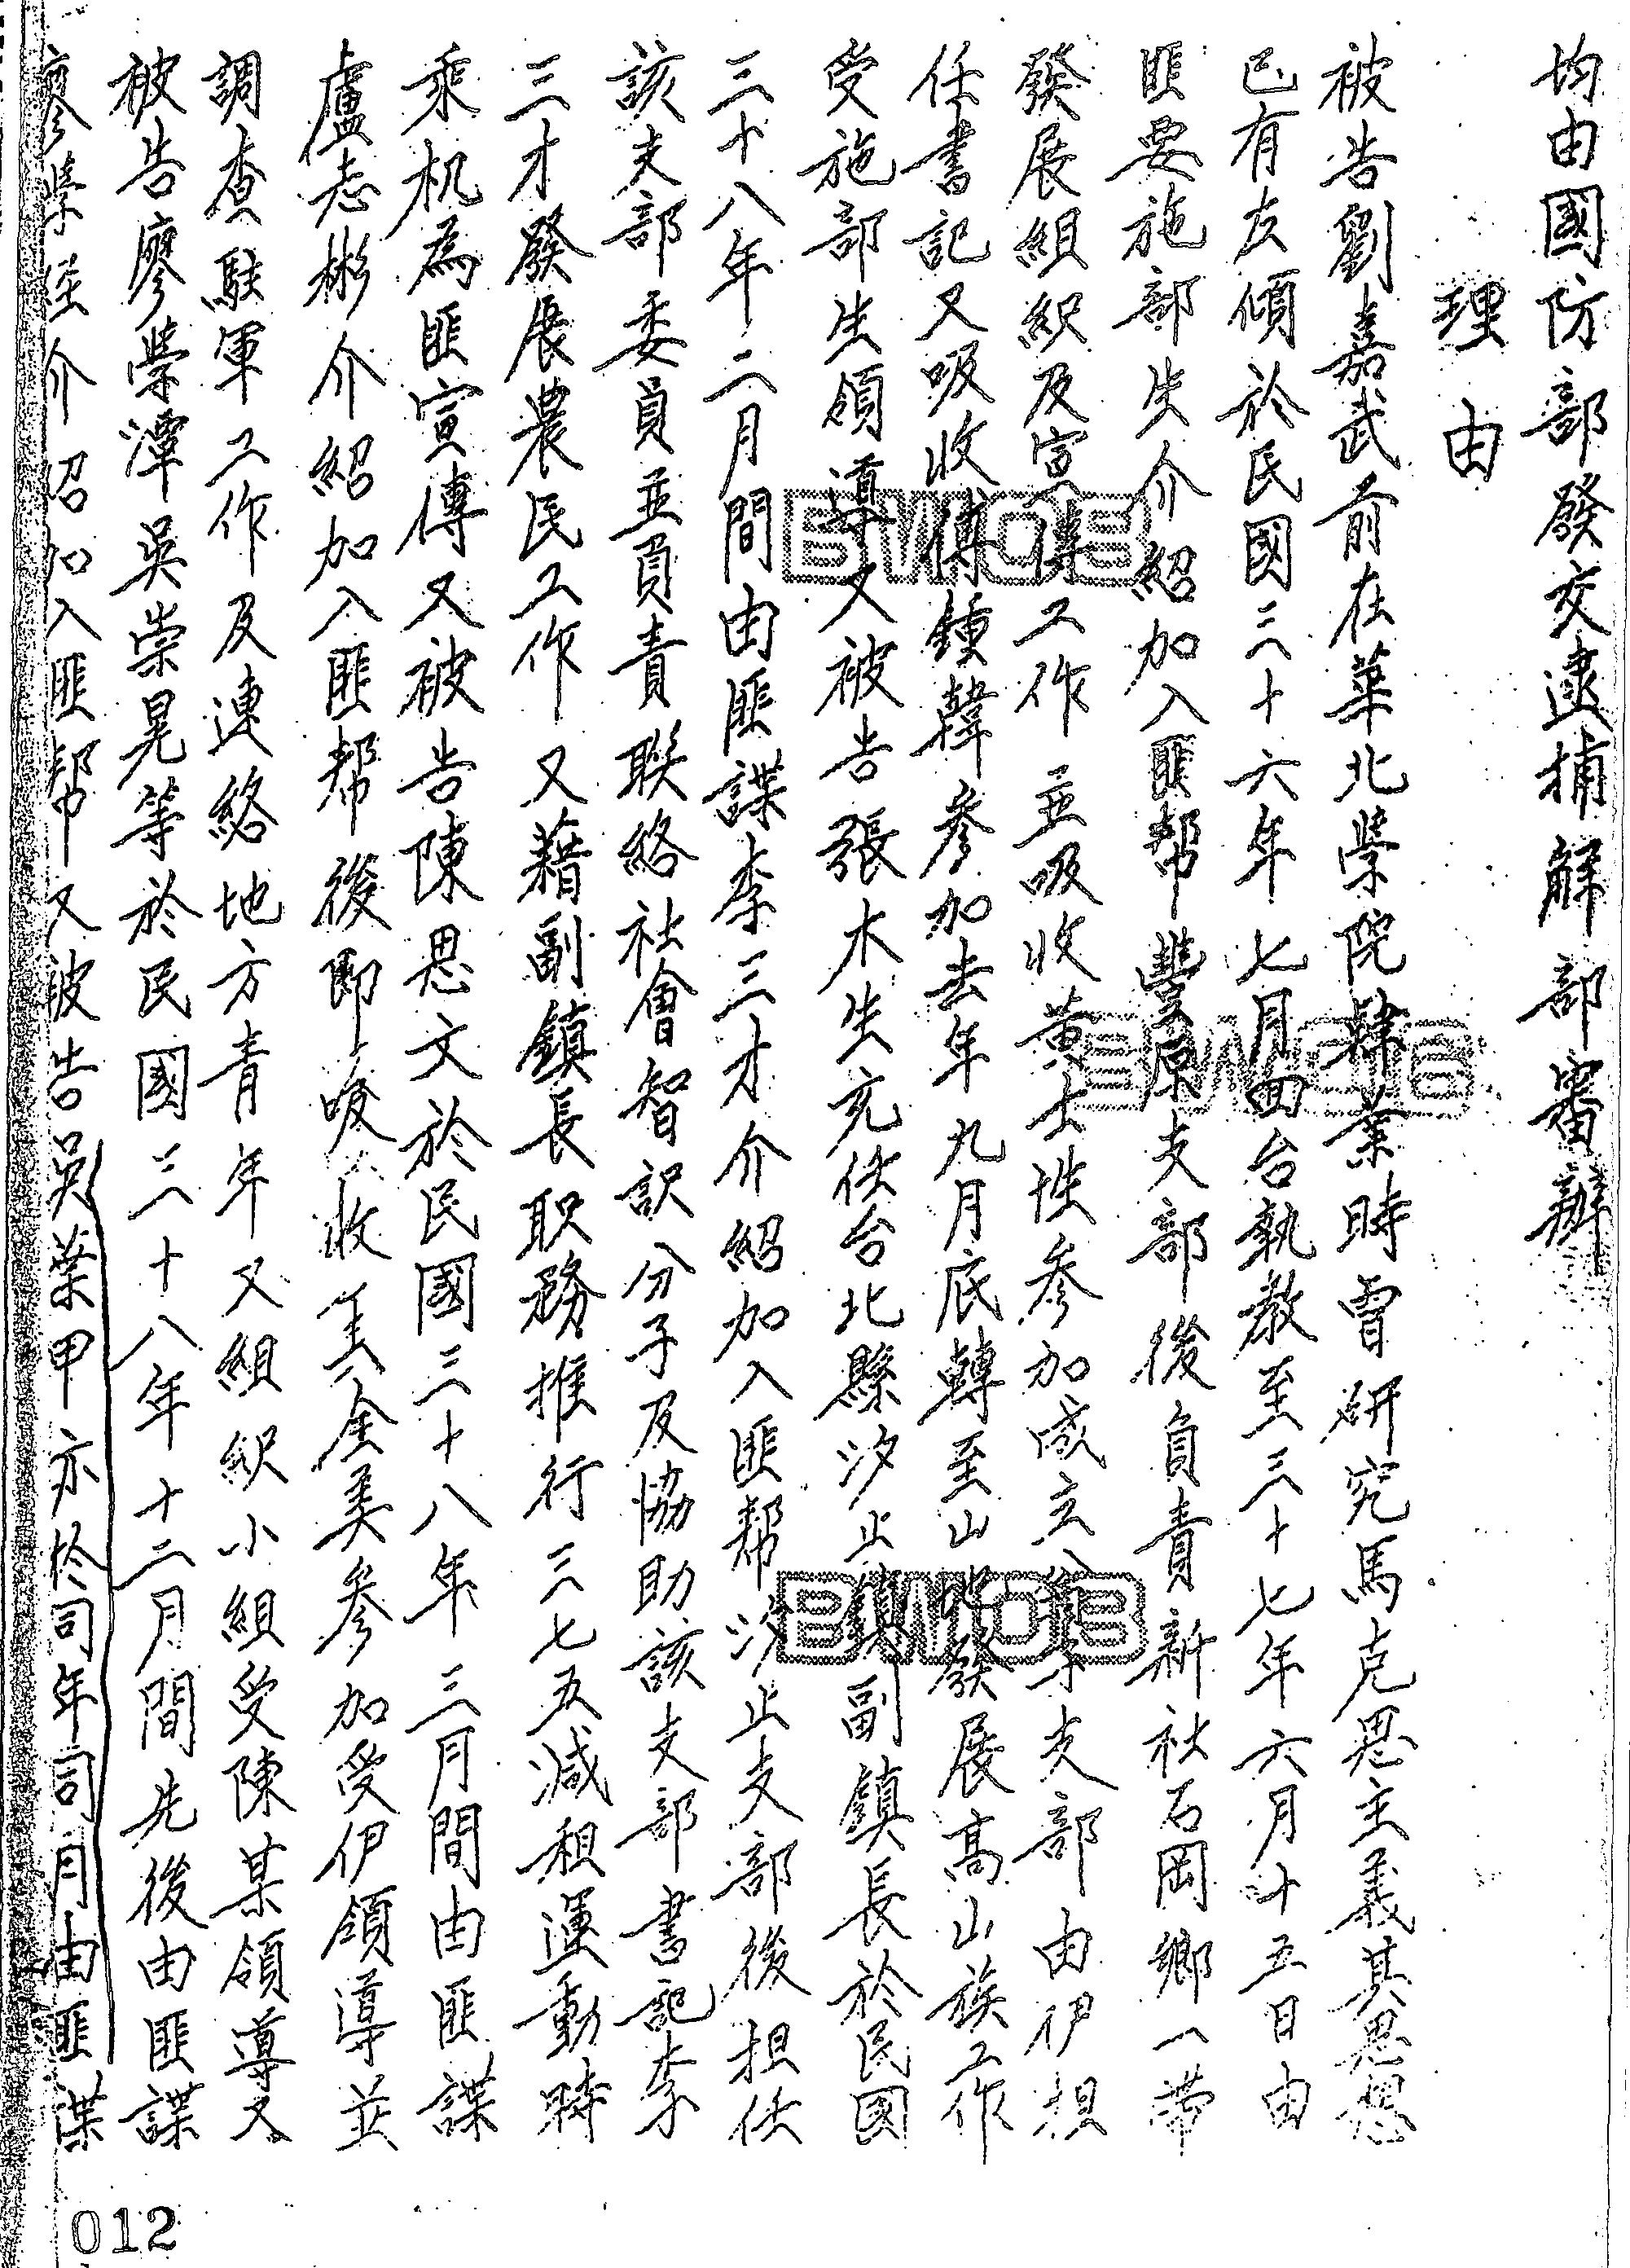 均由國防部發交逮捕解部審辦
理由
被告劉嘉武前在華北學院肄業時曾研究馬克思主義其思想
已有左傾於民國三十六年七月回台執教至三十七年六月十五日由
匪要施部生介紹加入匪帮豐原支部後負責新社石岡鄉一帶
發展組织及宣傳工作並吸收黄士性參加成立支部由伊担
任書記又吸收傅鍾韓參加去年九月底轉至山地發展高山族工作
受施部生領導又被告張木生充任台北縣汐止鎮副鎮長於民國
三十八年二月間由匪諜李三才介紹加入匪帮汐止支部後担任
該支部委員並負責联絡社會智识分子及協助該支部書記李
三才發展農民工作又藉副鎮長职務推行三七五減租運動時
乘机為匪宣傳又被告陳思文於民國三十八年三月間由匪諜
盧志彬介紹加入匪帮後即吸收王金美參加受伊領導並
調查駐軍工作及連絡地方青年又組织小組受陳某領導又
被告廖学潭吳崇晃等於民國三十八年十二月間先後由匪諜
廖学經介紹加入匪帮又被告吳葉甲亦於同年同月由匪諜
BMOB
BMOB
BMOB
012